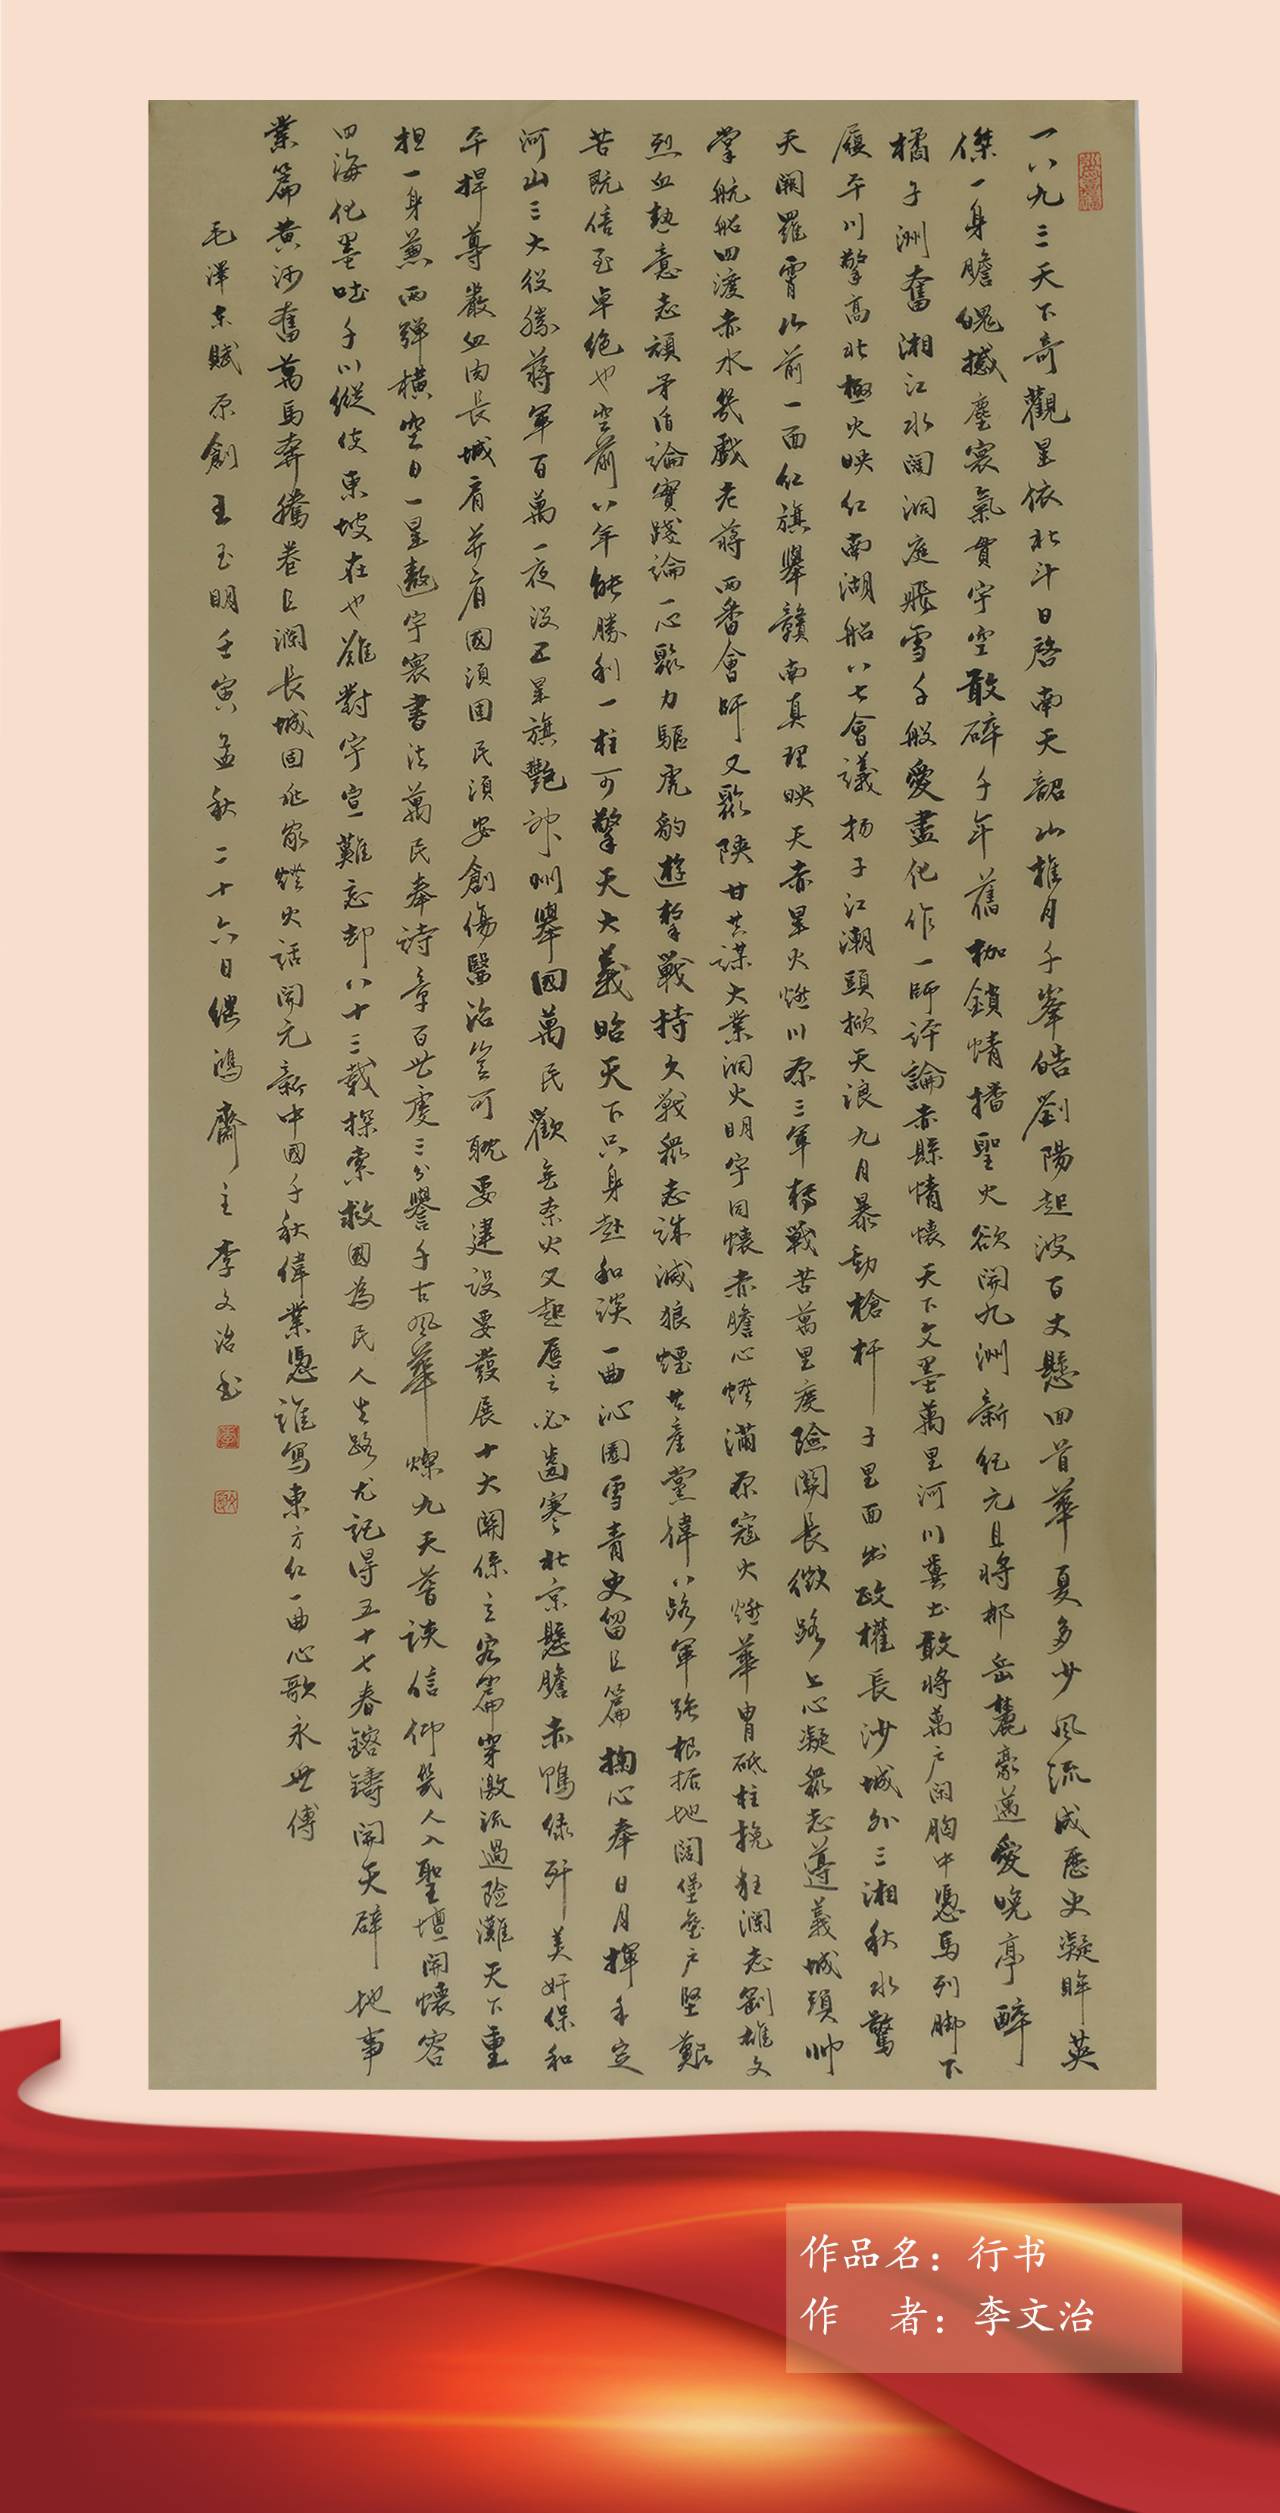 一八九三天下奇觀星依北斗日啓南天韶山推月千峯皓劉陽起波百丈懸回首華夏多少風流成歷史凝眸英
傑一身膽魄撼塵寰氣貫宇空敢碎千年舊枷鎖情播聖火欲開九洲新紀元且將那岳麓豪邁愛晚亭醉
橘子洲奮湘江水闊洞庭飛雪千般愛盡化作一師評論赤縣情懷天下文墨萬里河川糞土敢將萬戶閑胸中憑馬列腳下
履平川擎高北極火映紅南湖船八七會議揚子江潮頭掀天浪九月暴動槍杆子里面出政權長沙城外三湘秋水驚
天闕羅霄山前一面紅旗舉贛南真理映天赤星火燃川原三軍轉戰苦萬里度險關長徵路上心凝眾志遵義城頭帥
掌航船四渡赤水幾戲老蔣兩番會師又聚陝甘共謀大業洞火明宇同懷赤膽心燈滿原寇火燃華胄砥柱挽狂瀾志劉雄文
烈血熱意志頑矛盾論實踐論一心聚力驅虎豹遊擊戰持久戰眾志誅滅狼煙共產黨偉八路軍強根据地闊堡壘戶堅艱
苦既倍至卓絕也空前八年能勝利一柱可擎天大義昭天下只身赴和談一曲沁園雪青史留巨篇掬心奉日月揮手定
河山三大役勝蔣軍百萬一夜没五星旗艷神州舉國萬民歡無奈火又起唇亡必齒寒北京懸膽赤鴨綠歼美奸保和
平捍尊嚴血肉長城肩并肩國須固民須安創傷醫治豈可耽要建设要發展十大關係立宏篇穿激流過险灘天下重
担一身兼兩彈橫空日一星遨宇寰書法萬民奉詩章百世虔三分譽千古風華燦九天嘗談信仰幾人入聖壇開懷容
四海化墨吐千川縱使東坡在也難對宇宣難忘却八十三載探索救國為民人生路尤記得五十七春鎔鑄開天辟地事
業篇黄沙奮萬馬奔騰卷巨瀾長城固兆家燈火話開元新中國千秋偉業憑誰寫東方红一曲心歌永世傳
毛澤東賦原創王玉明壬寅孟秋二十六日继鴻齋主李文治书
作品名：行书
作　者：李文治